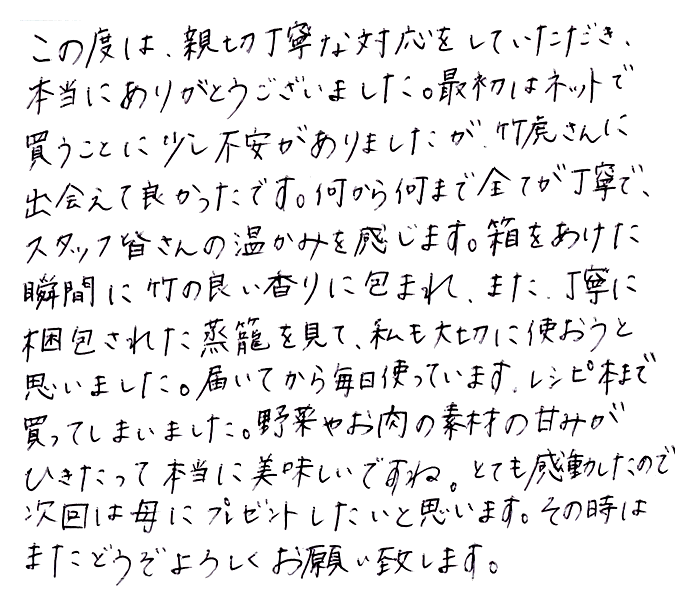 この度は、親切丁寧な対応をしていただき、
本当にありがとうございました。最初はネットで
買うことに少し不安がありましたが、竹虎さんに
出会えて良かったです。何から何まで全てが丁寧で、
スタッフ皆さんの温かみを感じます。箱をあけた
瞬間に竹の良い香りに包まれ、また、丁寧に
梱包された蒸籠を見て、私も大切に使おうと
思いました。届いてから毎日使っています。レシピ本まで
買ってしまいました。野菜やお肉の素材の甘みが
ひきたって本当に美味しいですね。とても感動したので
次回は母にプレゼントしたいと思います。その時は
またどうぞよろしくお願い致します。